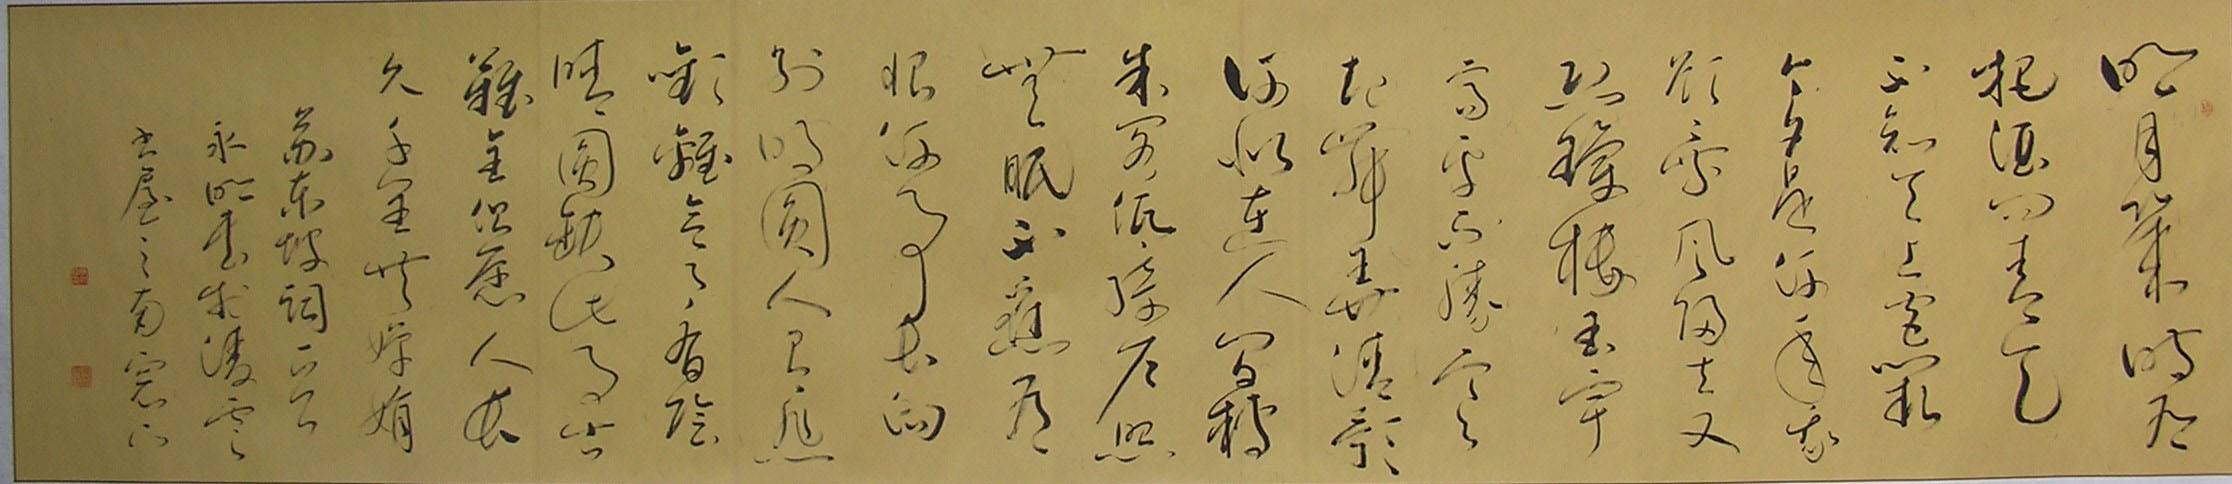 明月幾時有
把酒问青天
不知天上宫闕
今夕是何年我
欲乘风归去又
恐瓊楼玉宇
高處不勝寒
起舞弄清影
何似在人间轉
朱阁低绮户照
無眠不應有
恨何事长向
别时圓人有悲
歡離合月有陰
晴圓缺此事古
難全但愿人长
久千里共嬋娟
苏东坡词一首
永明书於凌雲
书屋之南窗下